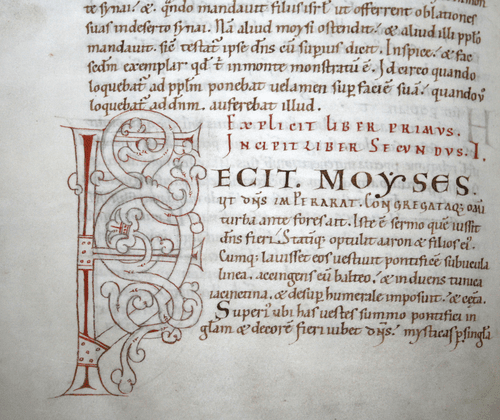 te synai. &. q̄ndo mandauit filiis isrl̄ ut offerrent oblationes
suas in deserto synai. Nā aliud moysi ostendit. & aliud illi pplō
mandauit. sic̄ testat ipse dn̄s cū supius dicit. Inspice. & fac
scdm̄ exemplar qd̄ t in monte monstratū ē. Idcirco quando
loquebat ad pplm̄ ponebat uelamen sup faciē suā. quando u͛
loquebat ad dnm̄. auferebat illud.
EXPLICIT LIBER PRIMUS.
INCIPIT LIBER SECUNDUS. I.
FECIT. MOYSES.
UT DN̄S IMPERARAT. CONGREGATAQ; OMĪ
turba ante fores ait. Iste ē sermo quē iussit
dn̄s fieri. Statiq; optulit aaron & filios ei.
Cumq; lauisset eos uestiuit pontificē subucula
linea. accingens eū balteo. & induens tunica
iacinctina. & desup humerale imposuit. & cet̄a.
Superi᷒ ubi has uestes summo pontifici in
glam̄ & decorē fieri iubet dn̄s. mysticas p singla